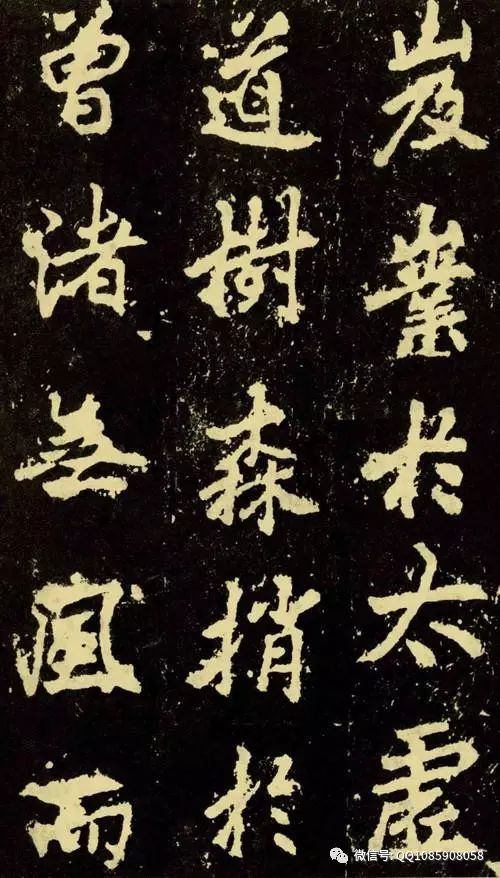 岌嶪於太虛
道樹森捎於
曾渚無風而
微信号: QQ1085908058